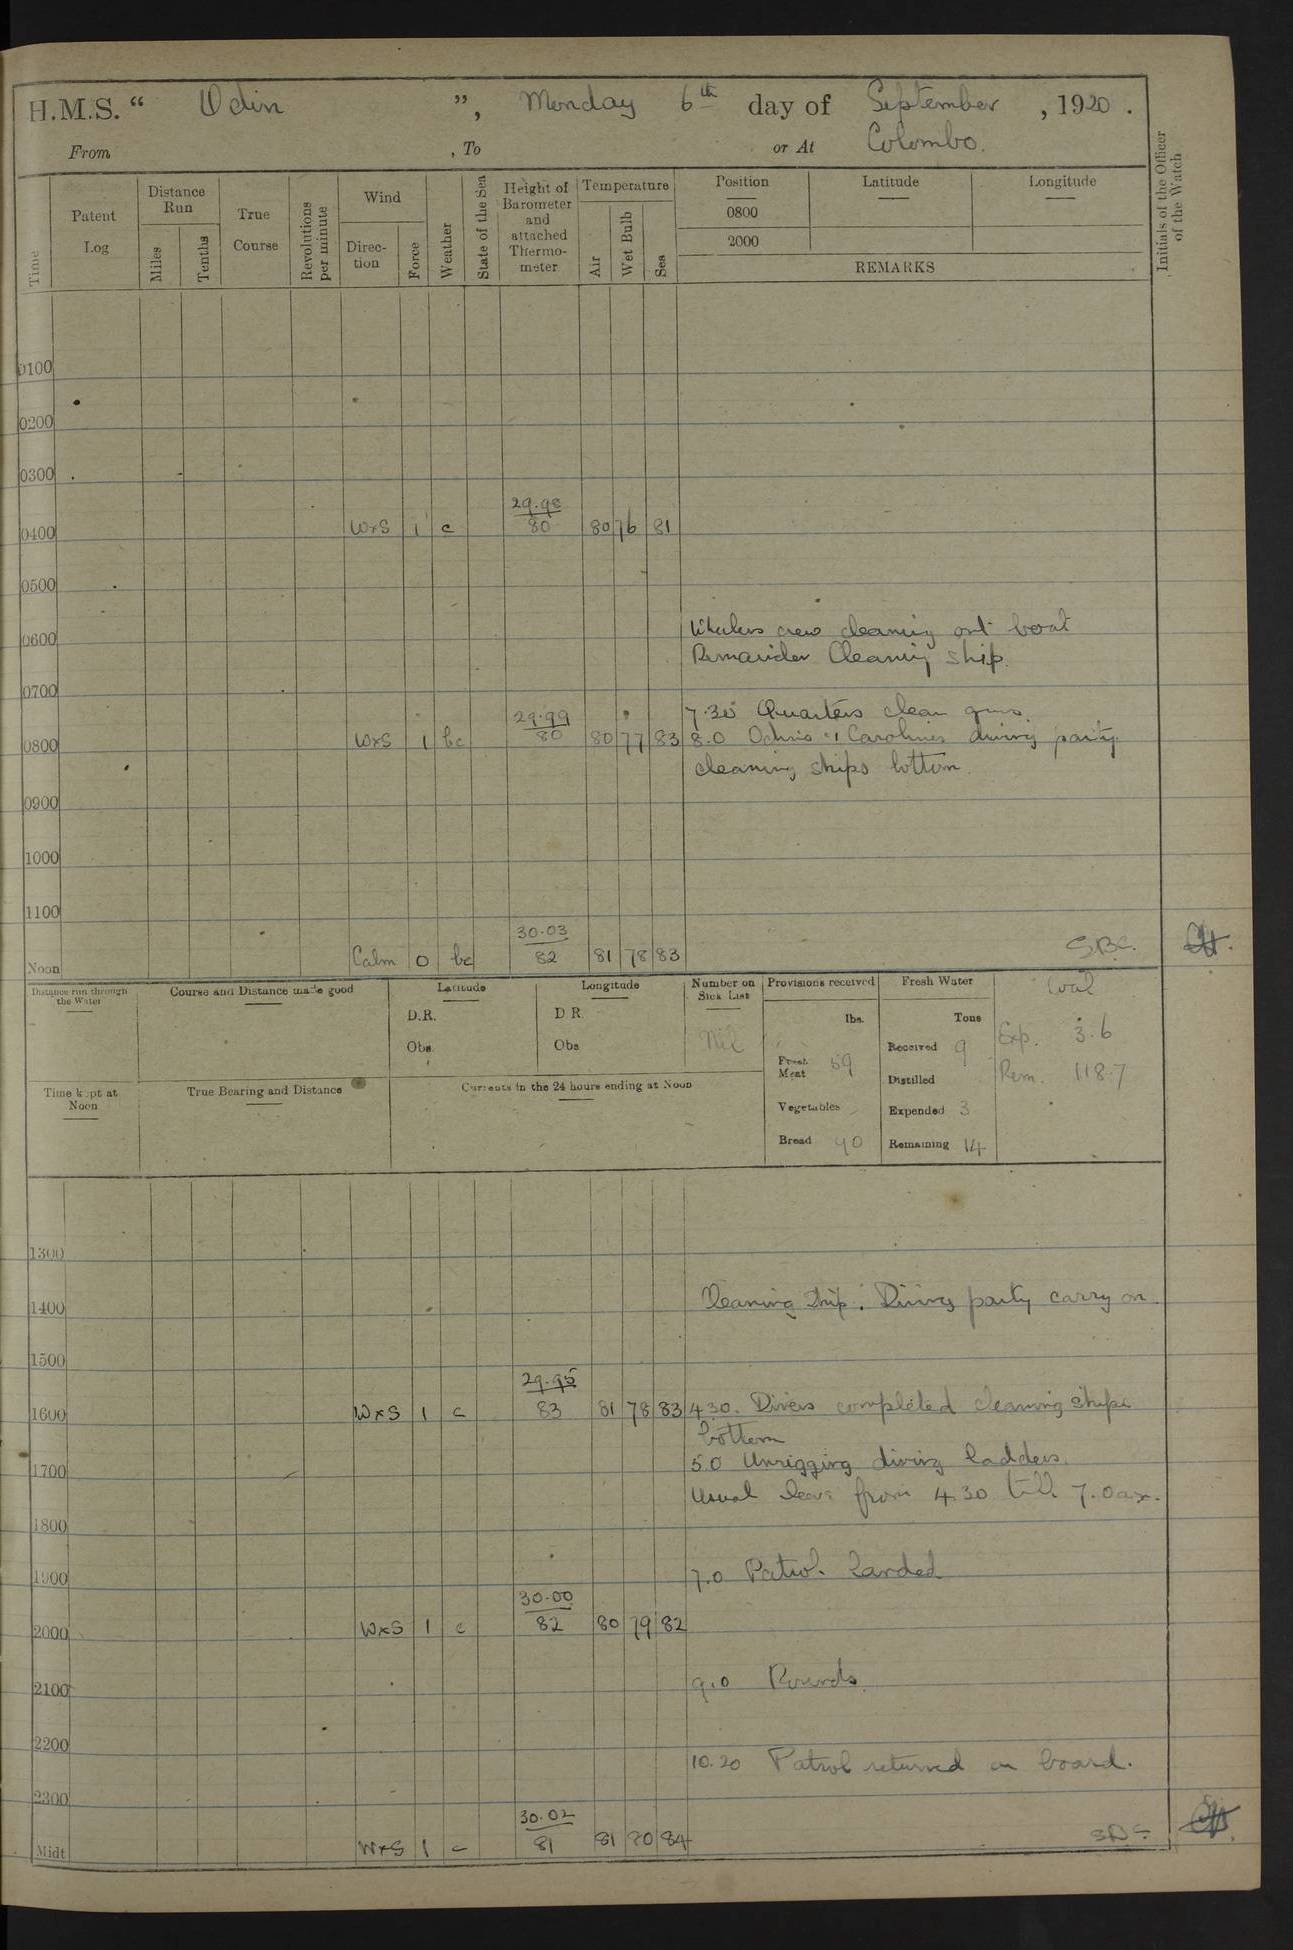 H.M.S. “ Odin ”, Monday 6th day of September, 1920.
From , To or At Colombo.
Time Patent Log Distance Run Miles Tenths True Course Revolutions per minute Wind Direc- tion Force Weather State of the Sea Height of Barometer and attached Thermo- meter Temperature Air Wet Bulb Sea Position 0800 2000 Latitude Longitude
REMARKS
Initials of the Officer of the Watch
0100
0200
0300
29.98
0400 WxS 1 c 80 80 76 81
0500
0600 Whalers crew cleaning out boat
Remainder Cleaning ship.
0700
7.30 Quarters clean guns.
29.99
0800 WxS 1 bc 80 80 77 83 8.0 Odins & Carolines diving party
cleaning ships bottom.
0900
1000
1100
30.03
Noon Calm 0 bc 82 81 78 83 S.B.C.
Distance run through the Water Course and Distance made good Latitude Longitude Number on Sick List Provisions received Fresh Water Coal
D.R. D R. lbs. Tons
Obs. Obs Nil Fresh Meat 59 Received 9 Exp. 3.6
Distilled Rem. 118.7
Time kept at Noon True Bearing and Distance Currents in the 24 hours ending at Noon
Vegetables Expended 3
Bread 40 Remaining 14
1300
1400 Cleaning Ship. Diving party carry on
1500
29.95
1600 WxS 1 c 83 81 78 83 4.30. Divers completed cleaning ships
bottom
1700 5.0 Unrigging diving ladders.
Usual leave from 4.30 till 7.0 a.m.
1800
1900 7.0 Patrol landed
30.00
2000 WxS 1 c 82 80 79 82
2100 9.0 Rounds.
2200 10.20 Patrol returned on board.
2300
30.02
Midt WxS 1 c 81 81 80 84